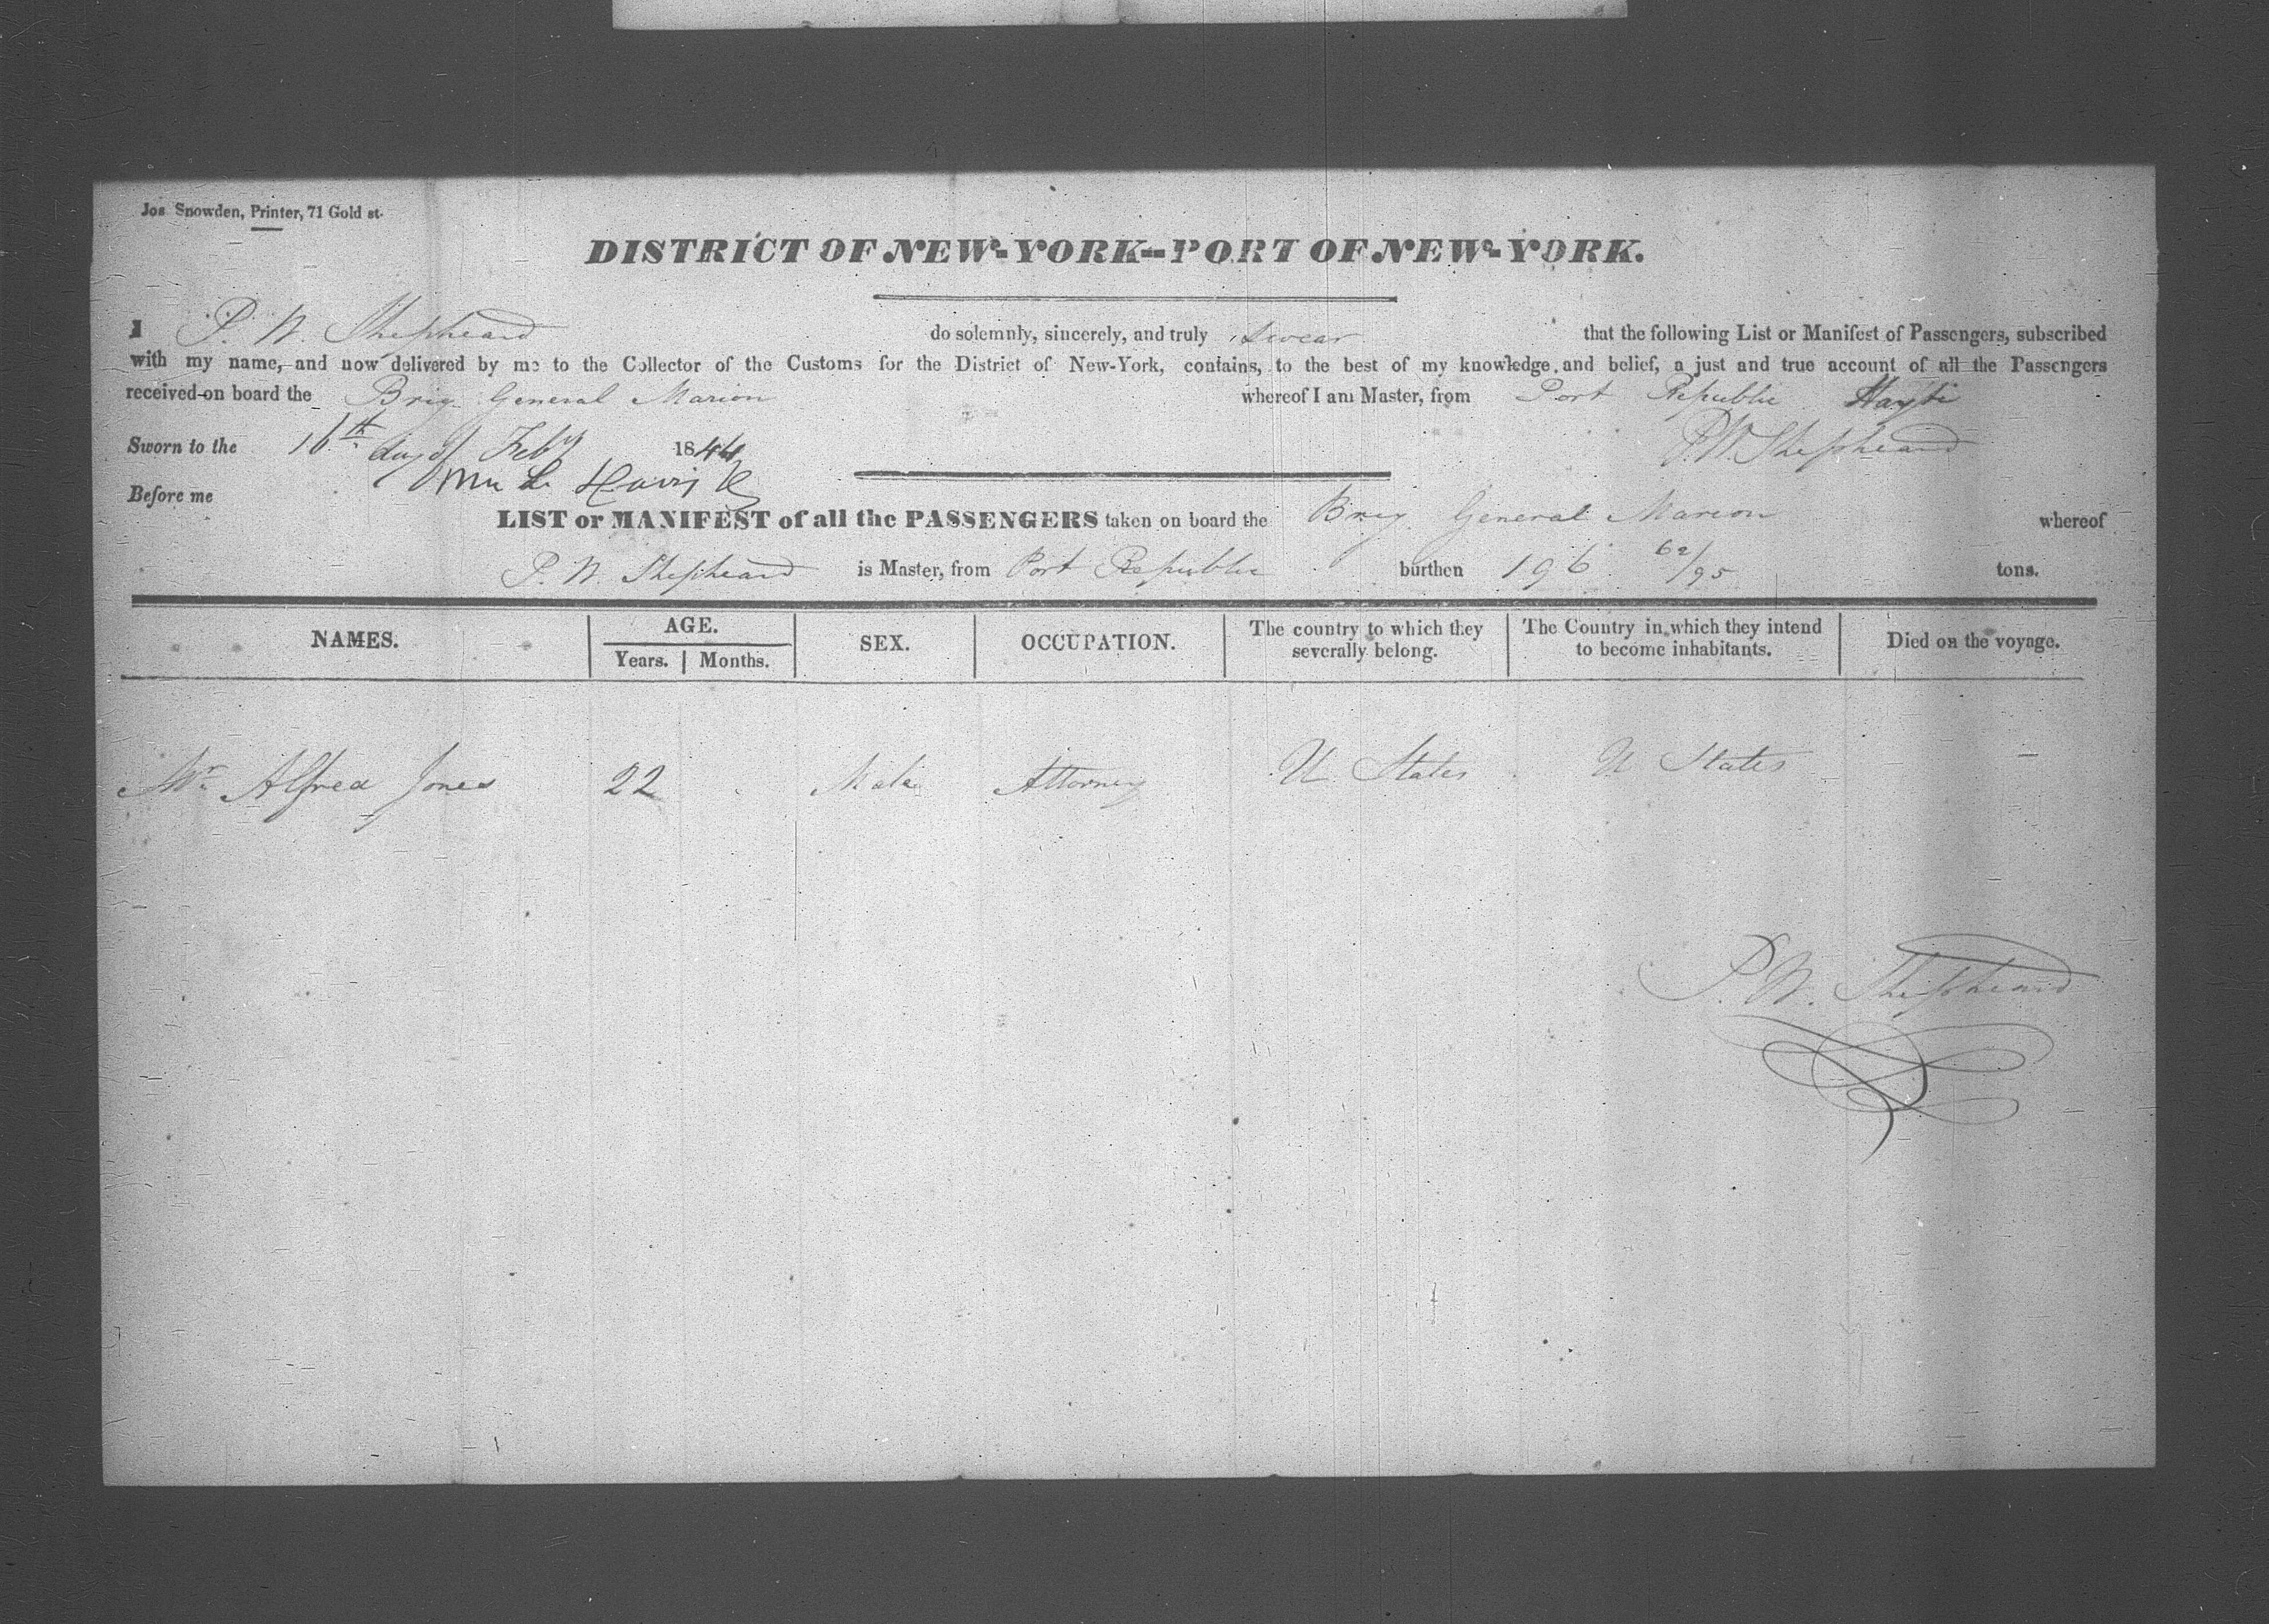 Jos Snowden, Printer, 71 Gold st.
DISTRICT OF NEW-YORK--PORT OF NEW-YORK.
I P. W. Shepheard do solemnly, sincerely, and truly swear that the following List or Manifest of Passengers, subscribed
with my name, and now delivered by me to the Collector of the Customs for the District of New-York, contains, to the best of my knowledge and belief, a just and true account of all the Passengers
received on board the Brig General Marion whereof I am Master, from Port Republic Hayti
Sworn to the 16th day of Feby 1844 P. W. Shepheard
Before me
LIST or MANIFEST of all the PASSENGERS taken on board the Brig General Marion whereof
P. W. Shepheard is Master, from Port Republic burthen 196 62/95 tons.
NAMES. AGE. SEX. OCCUPATION. The country to which they severally belong. The Country in which they intend to become inhabitants. Died on the voyage.
Years. Months.
Mr. Alfred Jones 22 Male Attorney U States U States —
P. W. Shepheard